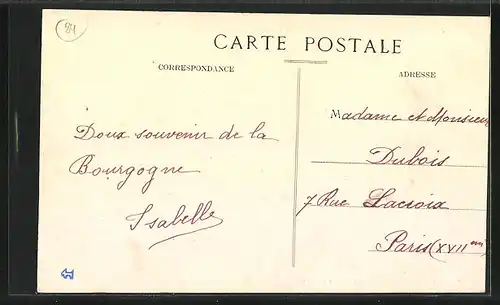 84
CARTE POSTALE
CORRESPONDANCE
ADRESSE
Doux souvenir de la
Bourgogne
Isabelle
Madame et Monsieur
Dubois
7 Rue Lacroix
Paris (XVIIem)